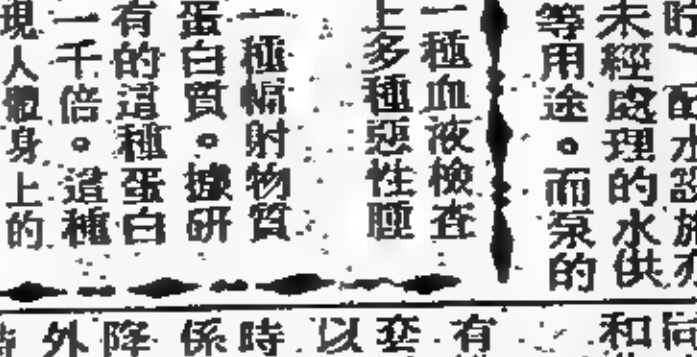 未經處理的水供
等用途。而泵的
一種血液檢查
上多種惡性腫
一種輻射物質
蛋白質。據研
有的這種蛋白
一千倍。這種
現人體身上的
和
有
以
時
係
降
外